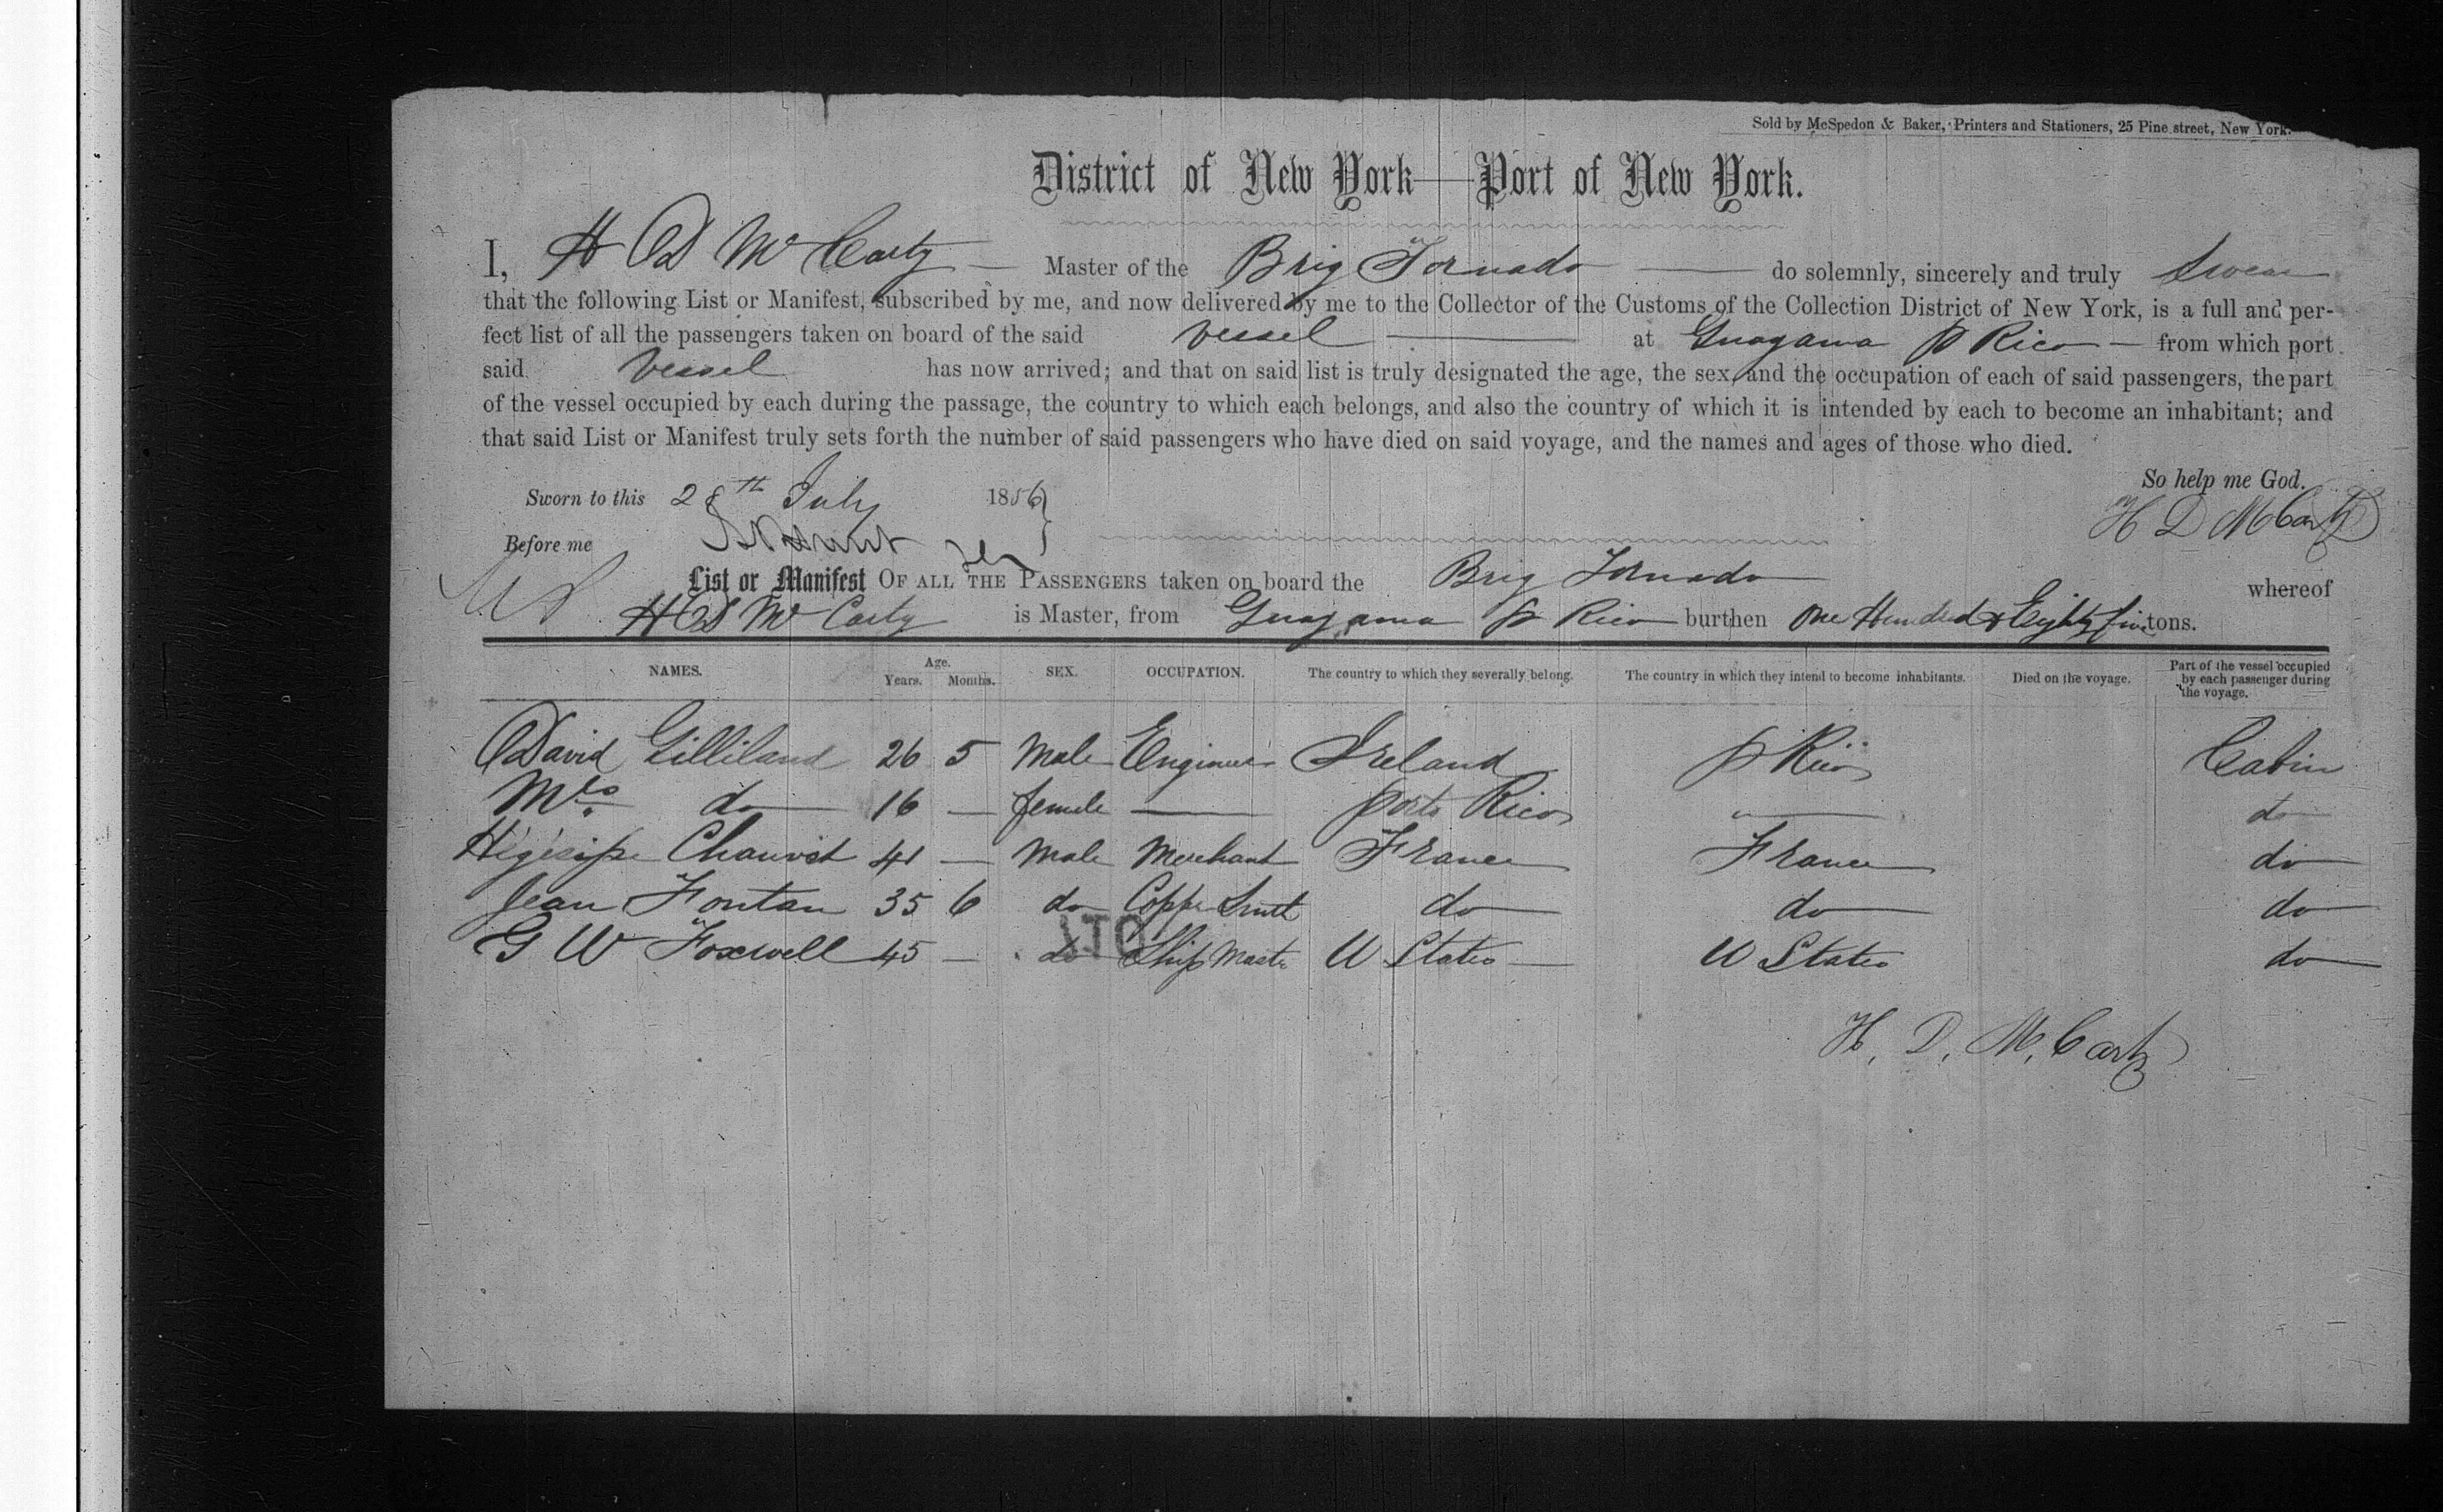 Sold by McSpedon & Baker, Printers and Stationers, 25 Pine street, New York.
District of New York—Port of New York.
I, H D McCarty — Master of the Brig Tornado — do solemnly, sincerely and truly Swear
that the following List or Manifest, subscribed by me, and now delivered by me to the Collector of the Customs of the Collection District of New York, is a full and per-
fect list of all the passengers taken on board of the said vessel — at Guayama P Rico — from which port
said vessel has now arrived; and that on said list is truly designated the age, the sex, and the occupation of each of said passengers, the part
of the vessel occupied by each during the passage, the country to which each belongs, and also the country of which it is intended by each to become an inhabitant; and
that said List or Manifest truly sets forth the number of said passengers who have died on said voyage, and the names and ages of those who died.
So help me God.
Sworn to this 28th July 1856
H D McCarty
Before me
List or Manifest OF ALL THE PASSENGERS taken on board the Brig Tornado whereof
H D McCarty is Master, from Guayama P Rico burthen One Hundred & Eighty five tons.
NAMES. Age. Years. Months. SEX. OCCUPATION. The country to which they severally belong. The country in which they intend to become inhabitants. Died on the voyage. Part of the vessel occupied by each passenger during the voyage.
David Gilliland 26 5 Male Engineer Ireland P Rico Cabin
Mrs do 16 — female — Porto Rico " — do
Hégésipe Chauvot 41 — Male Merchant France France do
Jean Fontan 35 6 do Copper Smit do do do
G W Foxwell 45 — do Ship Master U States — U States do
H. D. McCarty